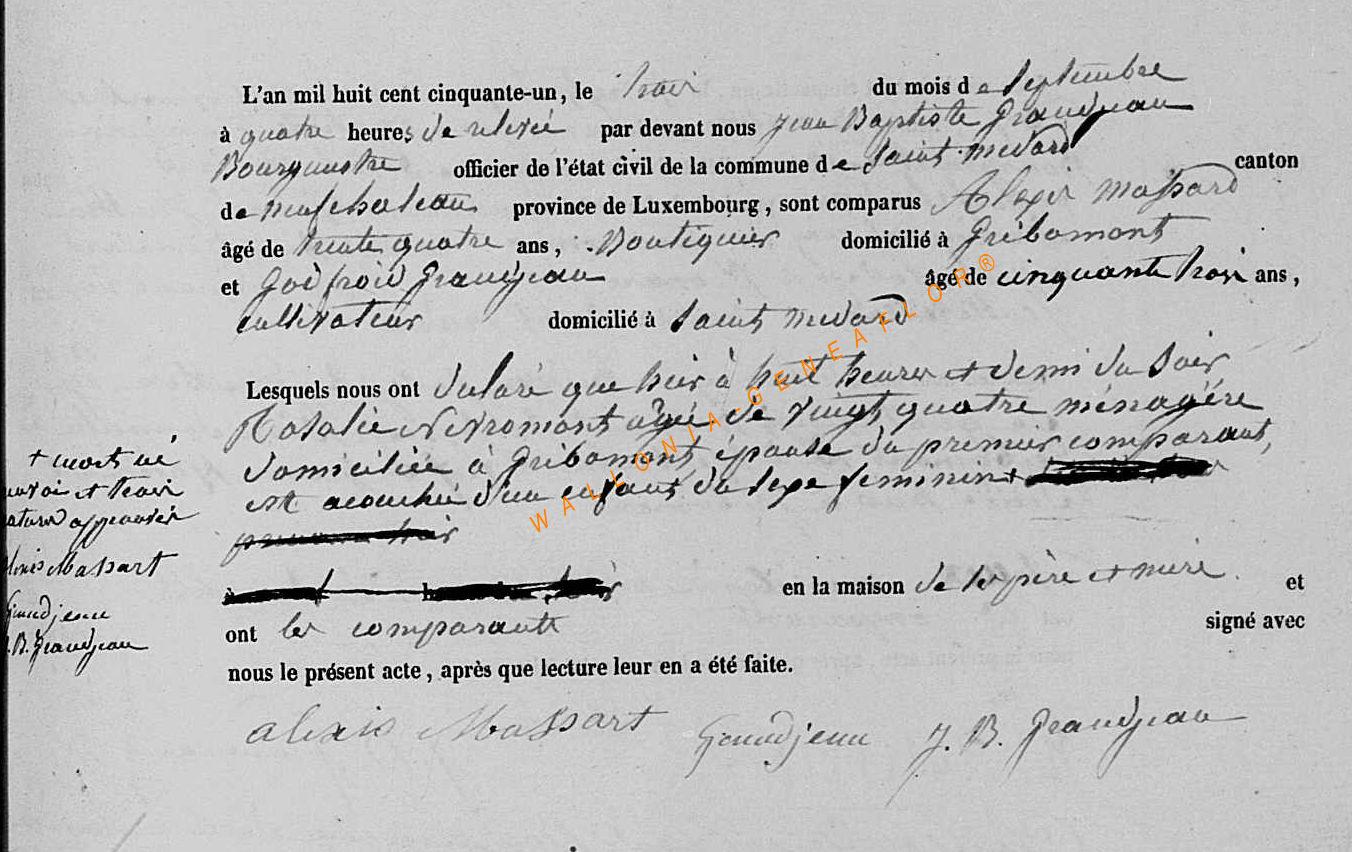 L'an mil huit cent cinquante-un, le trois du mois de Septembre
à quatre heures de relevée par devant nous Jean Baptiste Grandjean
Bourgmestre officier de l'état civil de la commune de Saint Medard canton
de neufchateau province de Luxembourg, sont comparus Alexis Massard
âgé de trente quatre ans, Boutiquier domicilié à Gribomont
et Godfroid Grandjean âgé de cinquante trois ans,
cultivateur domicilié à Saint Medard
Lesquels nous ont declaré que hier à huit heures et demi du soir
Rosalie agée de vingt quatre ménagère
domiciliée à Gribomont épouse du premier comparant,
est acouchée d'un enfant du sexe feminin +
en la maison de les père et mère et
ont les comparants signé avec
nous le présent acte, après que lecture leur en a été faite.
alexis Massart Grandjean J. B. Grandjean
+ mort né
renvoi et trois
ratures approuvés
alexis Massart
Grandjean
J.B. Grandjean
WALLONIA-GENEAFLOR®